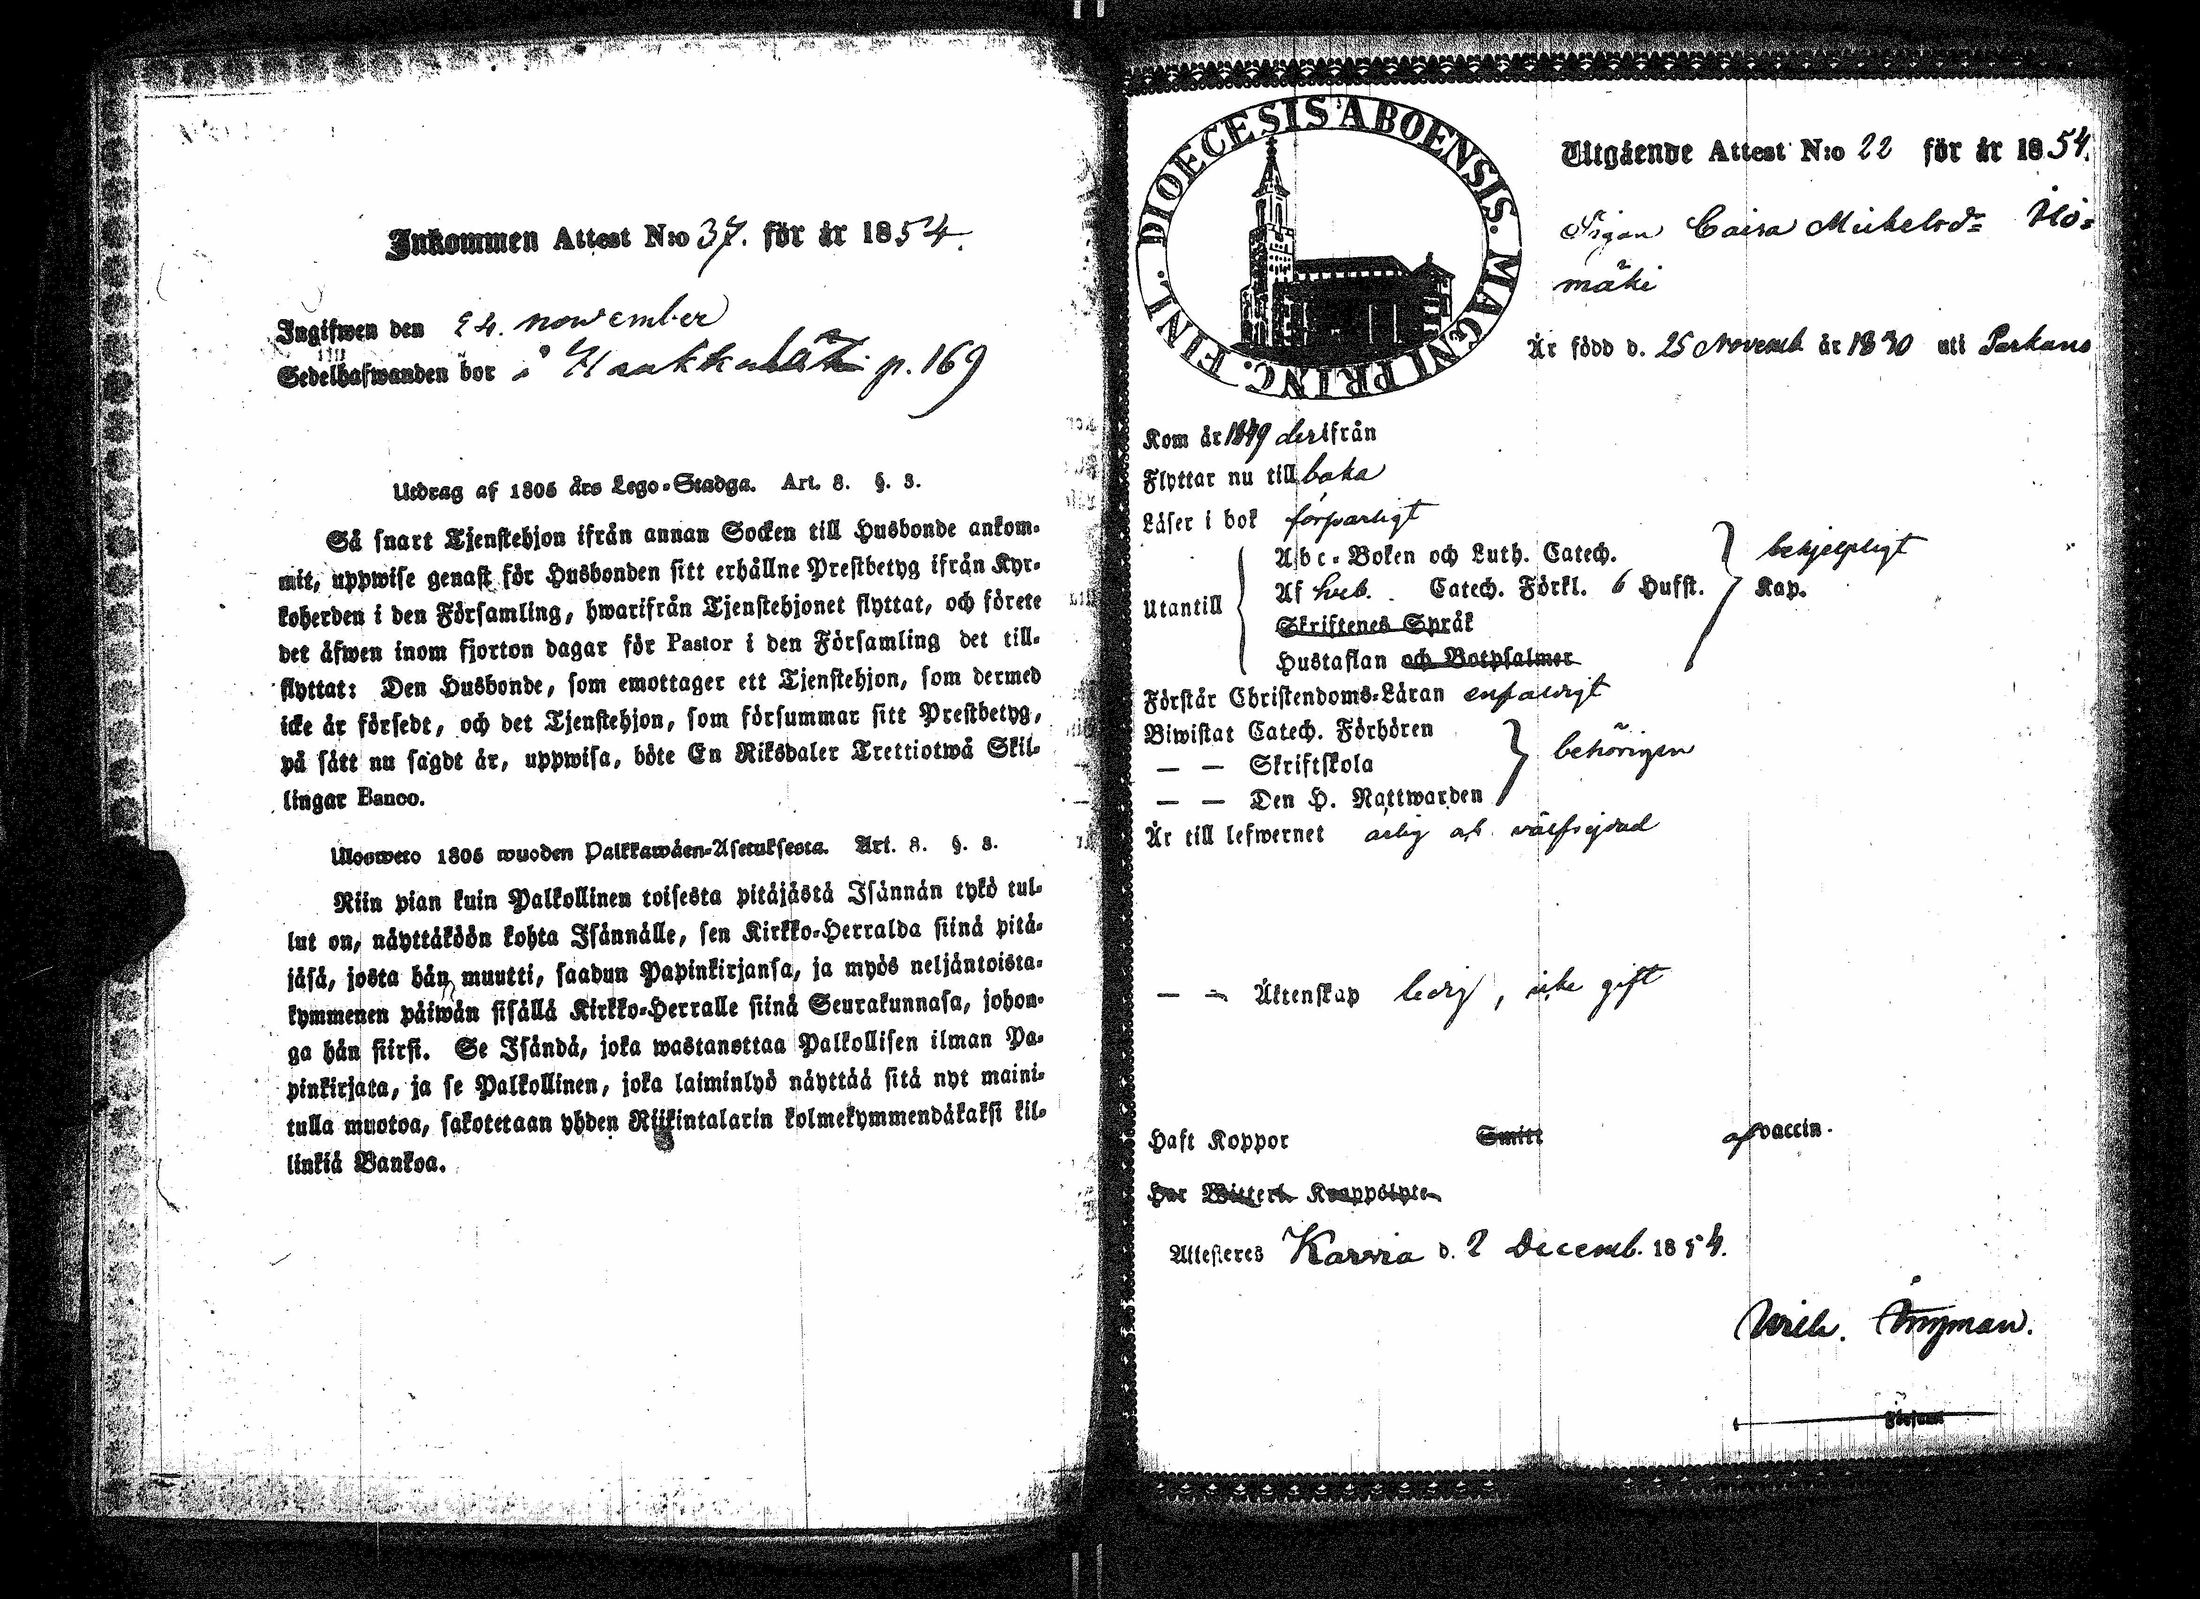 Inkommen Attest N:o 37. för år 1854.
Ingifwen den 24. november
Sedelhafwanden bor i p. 169
Utdrag af 1805 års Lego-Stadga. Art. 8. §. 3.
Så snart Tjenstehjon ifrån annan Socken till Husbonde ankom-
mit, uppwise genast för Husbonden sitt erhållne Prestbetyg ifrån Kyr-
koherden i den Församling, hwarifrån Tjenstehjonet flyttat, och förete
det äfwen inom fjorton dagar för Pastor i den Församling det till-
flyttat: Den Husbonde, som emottager ett Tjenstehjon, som dermed
icke är försedt, och det Tjenstehjon, som försummar sitt Prestbetyg,
på sätt nu sagdt är, uppwisa, böte En Riksdaler Trettiotwå Skil-
lingar Banco.
Ulosweto 1805 wuoden Palkkawäen-Asetuksesta. Art. 8. §. 3.
Niin pian kuin Palkollinen toisesta pitäjästä Isännän tykö tul-
lut on, näyttäköön kohta Isännälle, sen Kirkko-Herralda siinä pitä-
jäsä, josta hän muutti, saadun Papinkirjansa, ja myös neljäntoista-
kymmenen päiwän sisällä Kirkko-Herralle siinä Seurakunnasa, johon-
ga hän siirsi. Se Isändä, joka wastanottaa Palkollisen ilman Pa-
pinkirjata, ja se Palkollinen, joka laiminlyö näyttää sitä nyt maini-
tulla muotoa, sakotetaan yhden Riikintalarin kolmekymmendäkaksi kil-
linkiä Bankoa.
DIOECESIS ABOENSIS. MAGNI PRINC. FINL.
Utgående Attest N:o 22 för år 1854.
Pigan Caisa Mickelsd= Hö=
mäki
Är född d. 25 Novemb. år 1830 uti Parkano
Kom år 1849 derifrån
Flyttar nu till baka
Läser i bok försvarligt
Utantill
Abc-Boken och Luth. Catech.
Af Sveb. Catech. Förkl. 6 Hufst.
Skriftenes Språk
Hustaflan och Botpsalmer
behjelpligt
Kap.
Förstår Christendoms-Läran enfaldigt
Biwistat Catech. Förhören
— — Skriftskola
— — Den H. Nattwarden
behörigen
Är till lefwernet ärlig och välfrejdad
— — Äktenskap ledig, icke gift
Haft Koppor Smitt af vaccin.
Attesteras Karvia d. 2 Decemb. 1854.
Wilh.